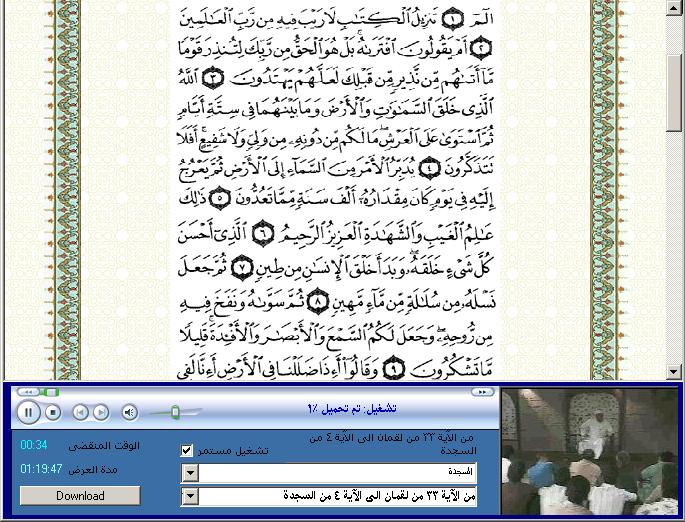 الٓمٓ ۝١ تَنزِيلُ ٱلْكِتَٰبِ لَا رَيْبَ فِيهِ مِن رَّبِّ ٱلْعَٰلَمِينَ
۝٢ أَمْ يَقُولُونَ ٱفْتَرَىٰهُ ۚ بَلْ هُوَ ٱلْحَقُّ مِن رَّبِّكَ لِتُنذِرَ قَوْمًا
مَّآ أَتَىٰهُم مِّن نَّذِيرٍ مِّن قَبْلِكَ لَعَلَّهُمْ يَهْتَدُونَ ۝٣ ٱللَّهُ
ٱلَّذِى خَلَقَ ٱلسَّمَٰوَٰتِ وَٱلْأَرْضَ وَمَا بَيْنَهُمَا فِى سِتَّةِ أَيَّامٍ
ثُمَّ ٱسْتَوَىٰ عَلَى ٱلْعَرْشِ ۖ مَا لَكُم مِّن دُونِهِۦ مِن وَلِىٍّ وَلَا شَفِيعٍ ۚ أَفَلَا
تَتَذَكَّرُونَ ۝٤ يُدَبِّرُ ٱلْأَمْرَ مِنَ ٱلسَّمَآءِ إِلَى ٱلْأَرْضِ ثُمَّ يَعْرُجُ
إِلَيْهِ فِى يَوْمٍ كَانَ مِقْدَارُهُۥٓ أَلْفَ سَنَةٍ مِّمَّا تَعُدُّونَ ۝٥ ذَٰلِكَ
عَٰلِمُ ٱلْغَيْبِ وَٱلشَّهَٰدَةِ ٱلْعَزِيزُ ٱلرَّحِيمُ ۝٦ ٱلَّذِىٓ أَحْسَنَ
كُلَّ شَىْءٍ خَلَقَهُۥ ۖ وَبَدَأَ خَلْقَ ٱلْإِنسَٰنِ مِن طِينٍ ۝٧ ثُمَّ جَعَلَ
نَسْلَهُۥ مِن سُلَٰلَةٍ مِّن مَّآءٍ مَّهِينٍ ۝٨ ثُمَّ سَوَّىٰهُ وَنَفَخَ فِيهِ
مِن رُّوحِهِۦ ۖ وَجَعَلَ لَكُمُ ٱلسَّمْعَ وَٱلْأَبْصَٰرَ وَٱلْأَفْـِٔدَةَ ۚ قَلِيلًا
مَّا تَشْكُرُونَ ۝٩ وَقَالُوٓا۟ أَءِذَا ضَلَلْنَا فِى ٱلْأَرْضِ أَءِنَّا لَفِى
تشغيل: تم تحميل ١٪
00:34 الوقت المنقضى
01:19:47 مدة العرض
Download
من الآية ٣٣ من لقمان الى الآية ٤ من
السجدة
تشغيل مستمر
السجدة
من الآية ٣٣ من لقمان الى الآية ٤ من السجدة